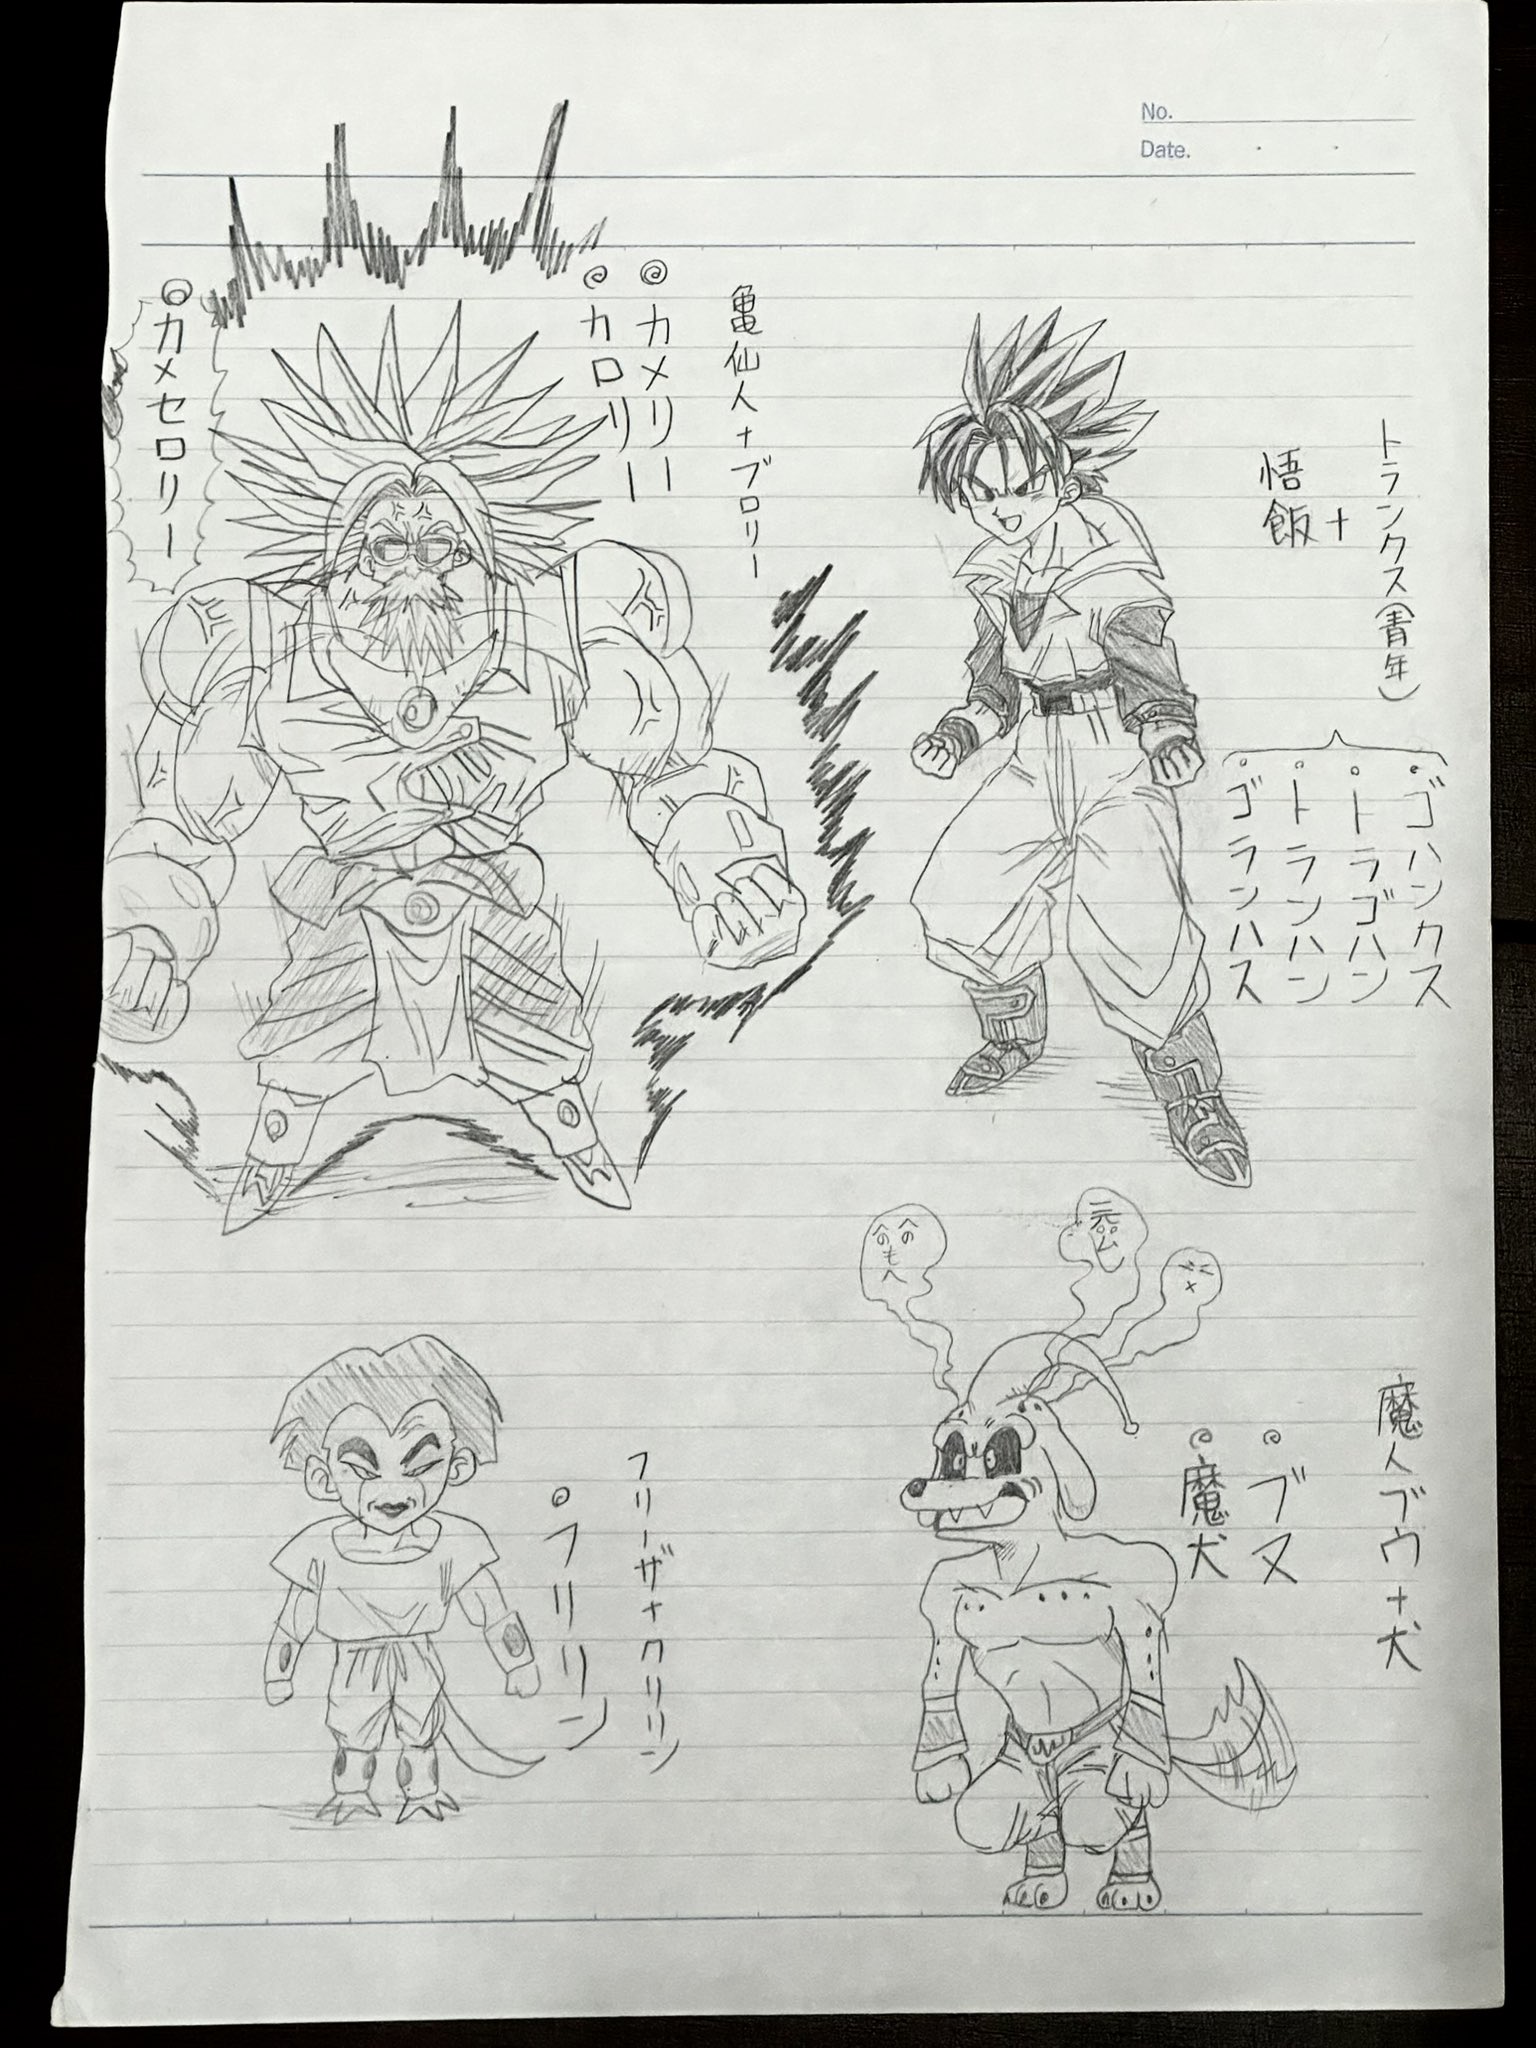 No.
Date.
トランクス(青年)
+
悟飯
ゴハンクス
トラゴハン
トランハン
ゴランハス
亀仙人+ブロリー
カメリー
カロリー
カメセロリー
へのへの
もへ
魔人ブウ+犬
ブヌ
魔犬
フリーザ+クリリン
フリリン